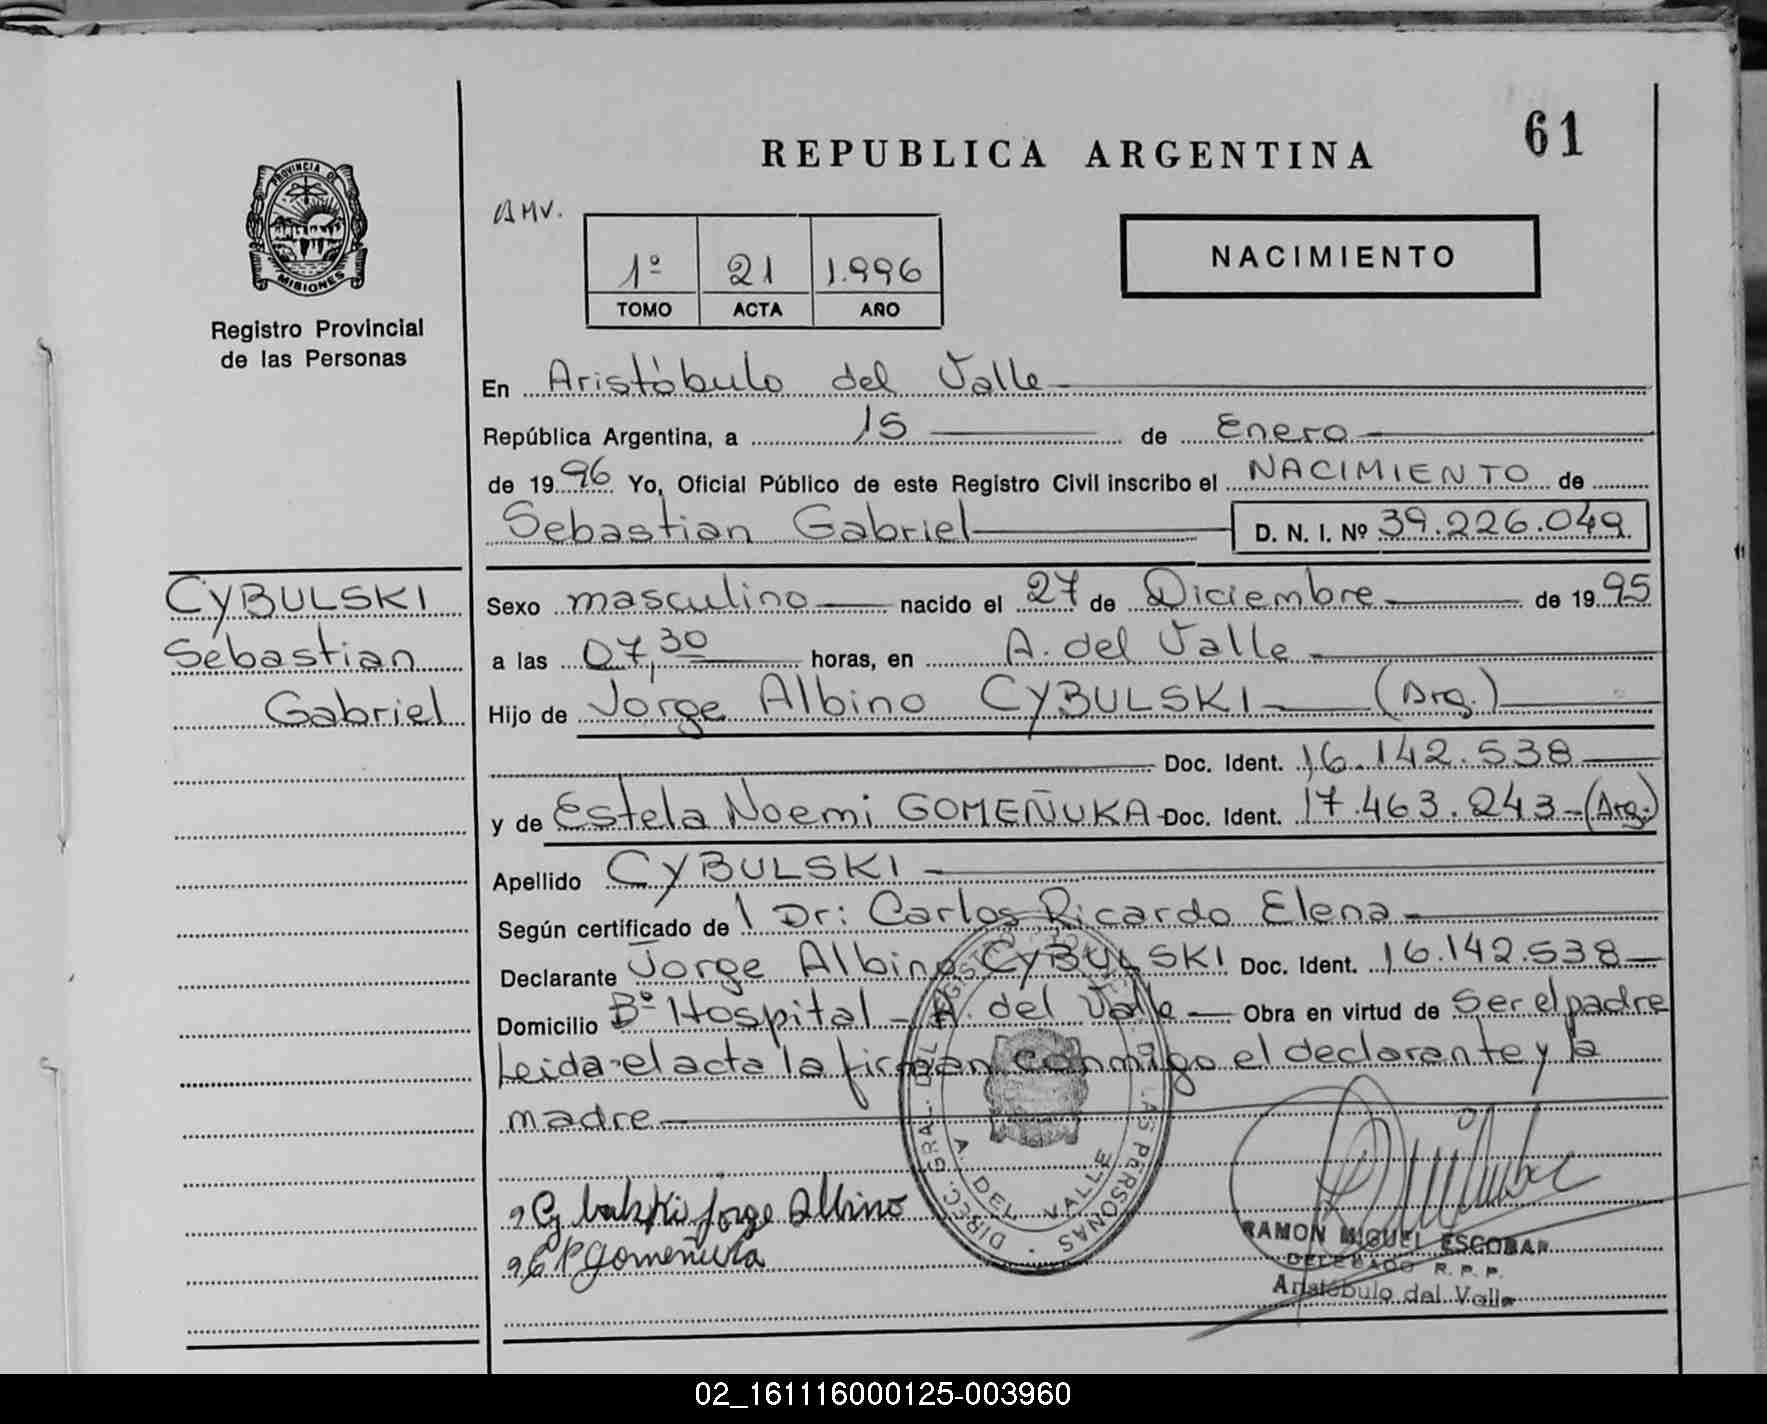 61
REPUBLICA ARGENTINA
PROVINCIA DE
MISIONES
Registro Provincial
de las Personas
AMV.
1º 21 1.996
TOMO ACTA AÑO
NACIMIENTO
En Aristóbulo del Valle
República Argentina, a 15 de Enero
de 1996 Yo, Oficial Público de este Registro Civil inscribo el NACIMIENTO de
Sebastian Gabriel D. N. I. Nº 39.226.049
CYBULSKI
Sebastian
Gabriel
Sexo masculino nacido el 27 de Diciembre de 1995
a las 07,30 horas, en A. del Valle
Hijo de Jorge Albino CYBULSKI (Arg.)
Doc. Ident. 16.142.538
y de Estela Noemi GOMEÑUKA Doc. Ident. 17.463.243 (Arg.)
Apellido CYBULSKI
Según certificado de Dr: Carlos Ricardo Elena
Declarante Jorge Albino CYBULSKI Doc. Ident. 16.142.538
Domicilio Bº Hospital - A. del Valle Obra en virtud de Ser el padre
Leida el acta la firman conmigo el declarante y la
madre
DIREC. GRAL. DEL LAS PERSONAS
A. DEL VALLE
Cybulski Jorge Albino
Gomeñuka
RAMON MIGUEL ESCOBAR
DELEGADO R. P. P.
Aristóbulo del Valle
02_161116000125-003960